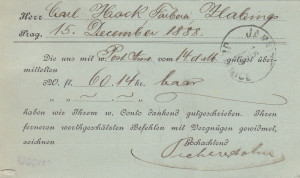 Herr Carl Flack Färberei, Slabings
Prag, 15. December 1888.
Die uns mit w. Post Anw. vom 14. d. M. gütigst über-
mittelten
ö. W. fl. 60.14 kr. baar
haben wir Ihrem w. Conto dankend gutgeschrieben. Ihren
ferneren werthgeschätzten Befehlen mit Vergnügen gewidmet,
zeichnen
Hochachtend